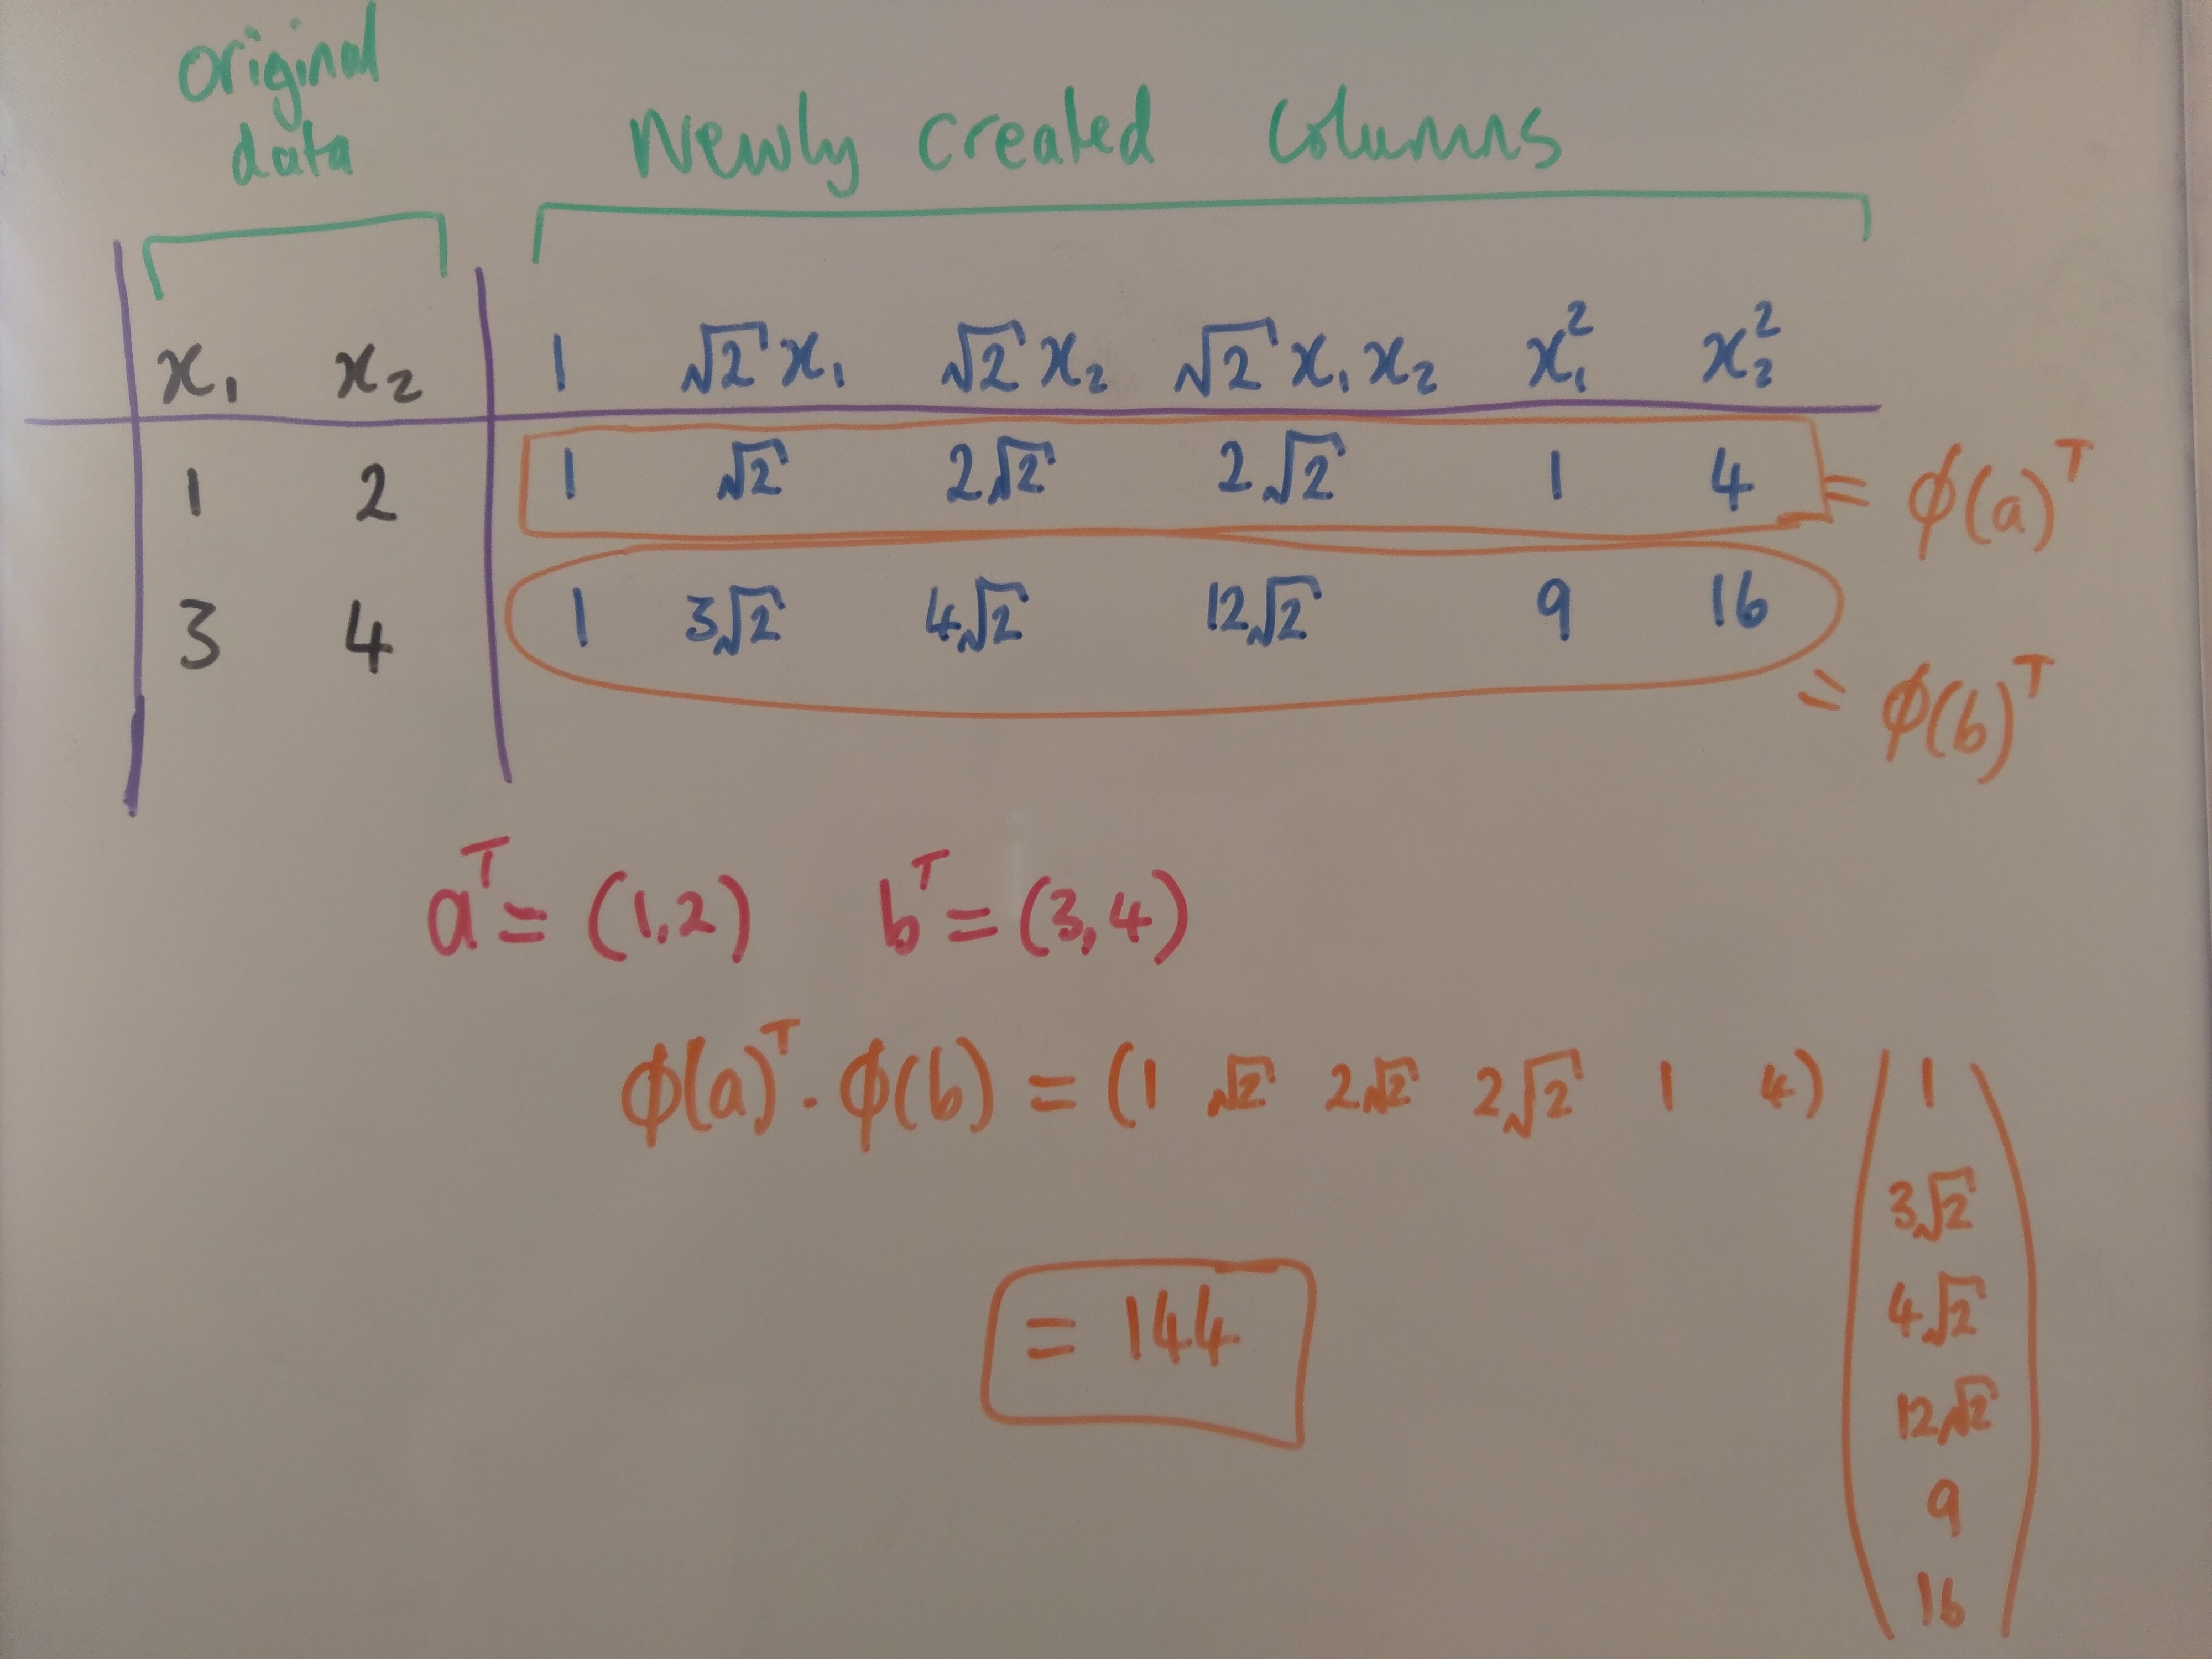 original
data
Newly created columns
x₁ x₂ 1 √2 x₁ √2 x₂ √2 x₁ x₂ x₁² x₂²
1 2 1 √2 2√2 2√2 1 4 = ϕ(a)ᵀ
3 4 1 3√2 4√2 12√2 9 16
= ϕ(b)ᵀ
aᵀ = (1,2) bᵀ = (3,4)
ϕ(a)ᵀ · ϕ(b) = (1 √2 2√2 2√2 1 4) (1
3√2
4√2
12√2
9
16)
= 144